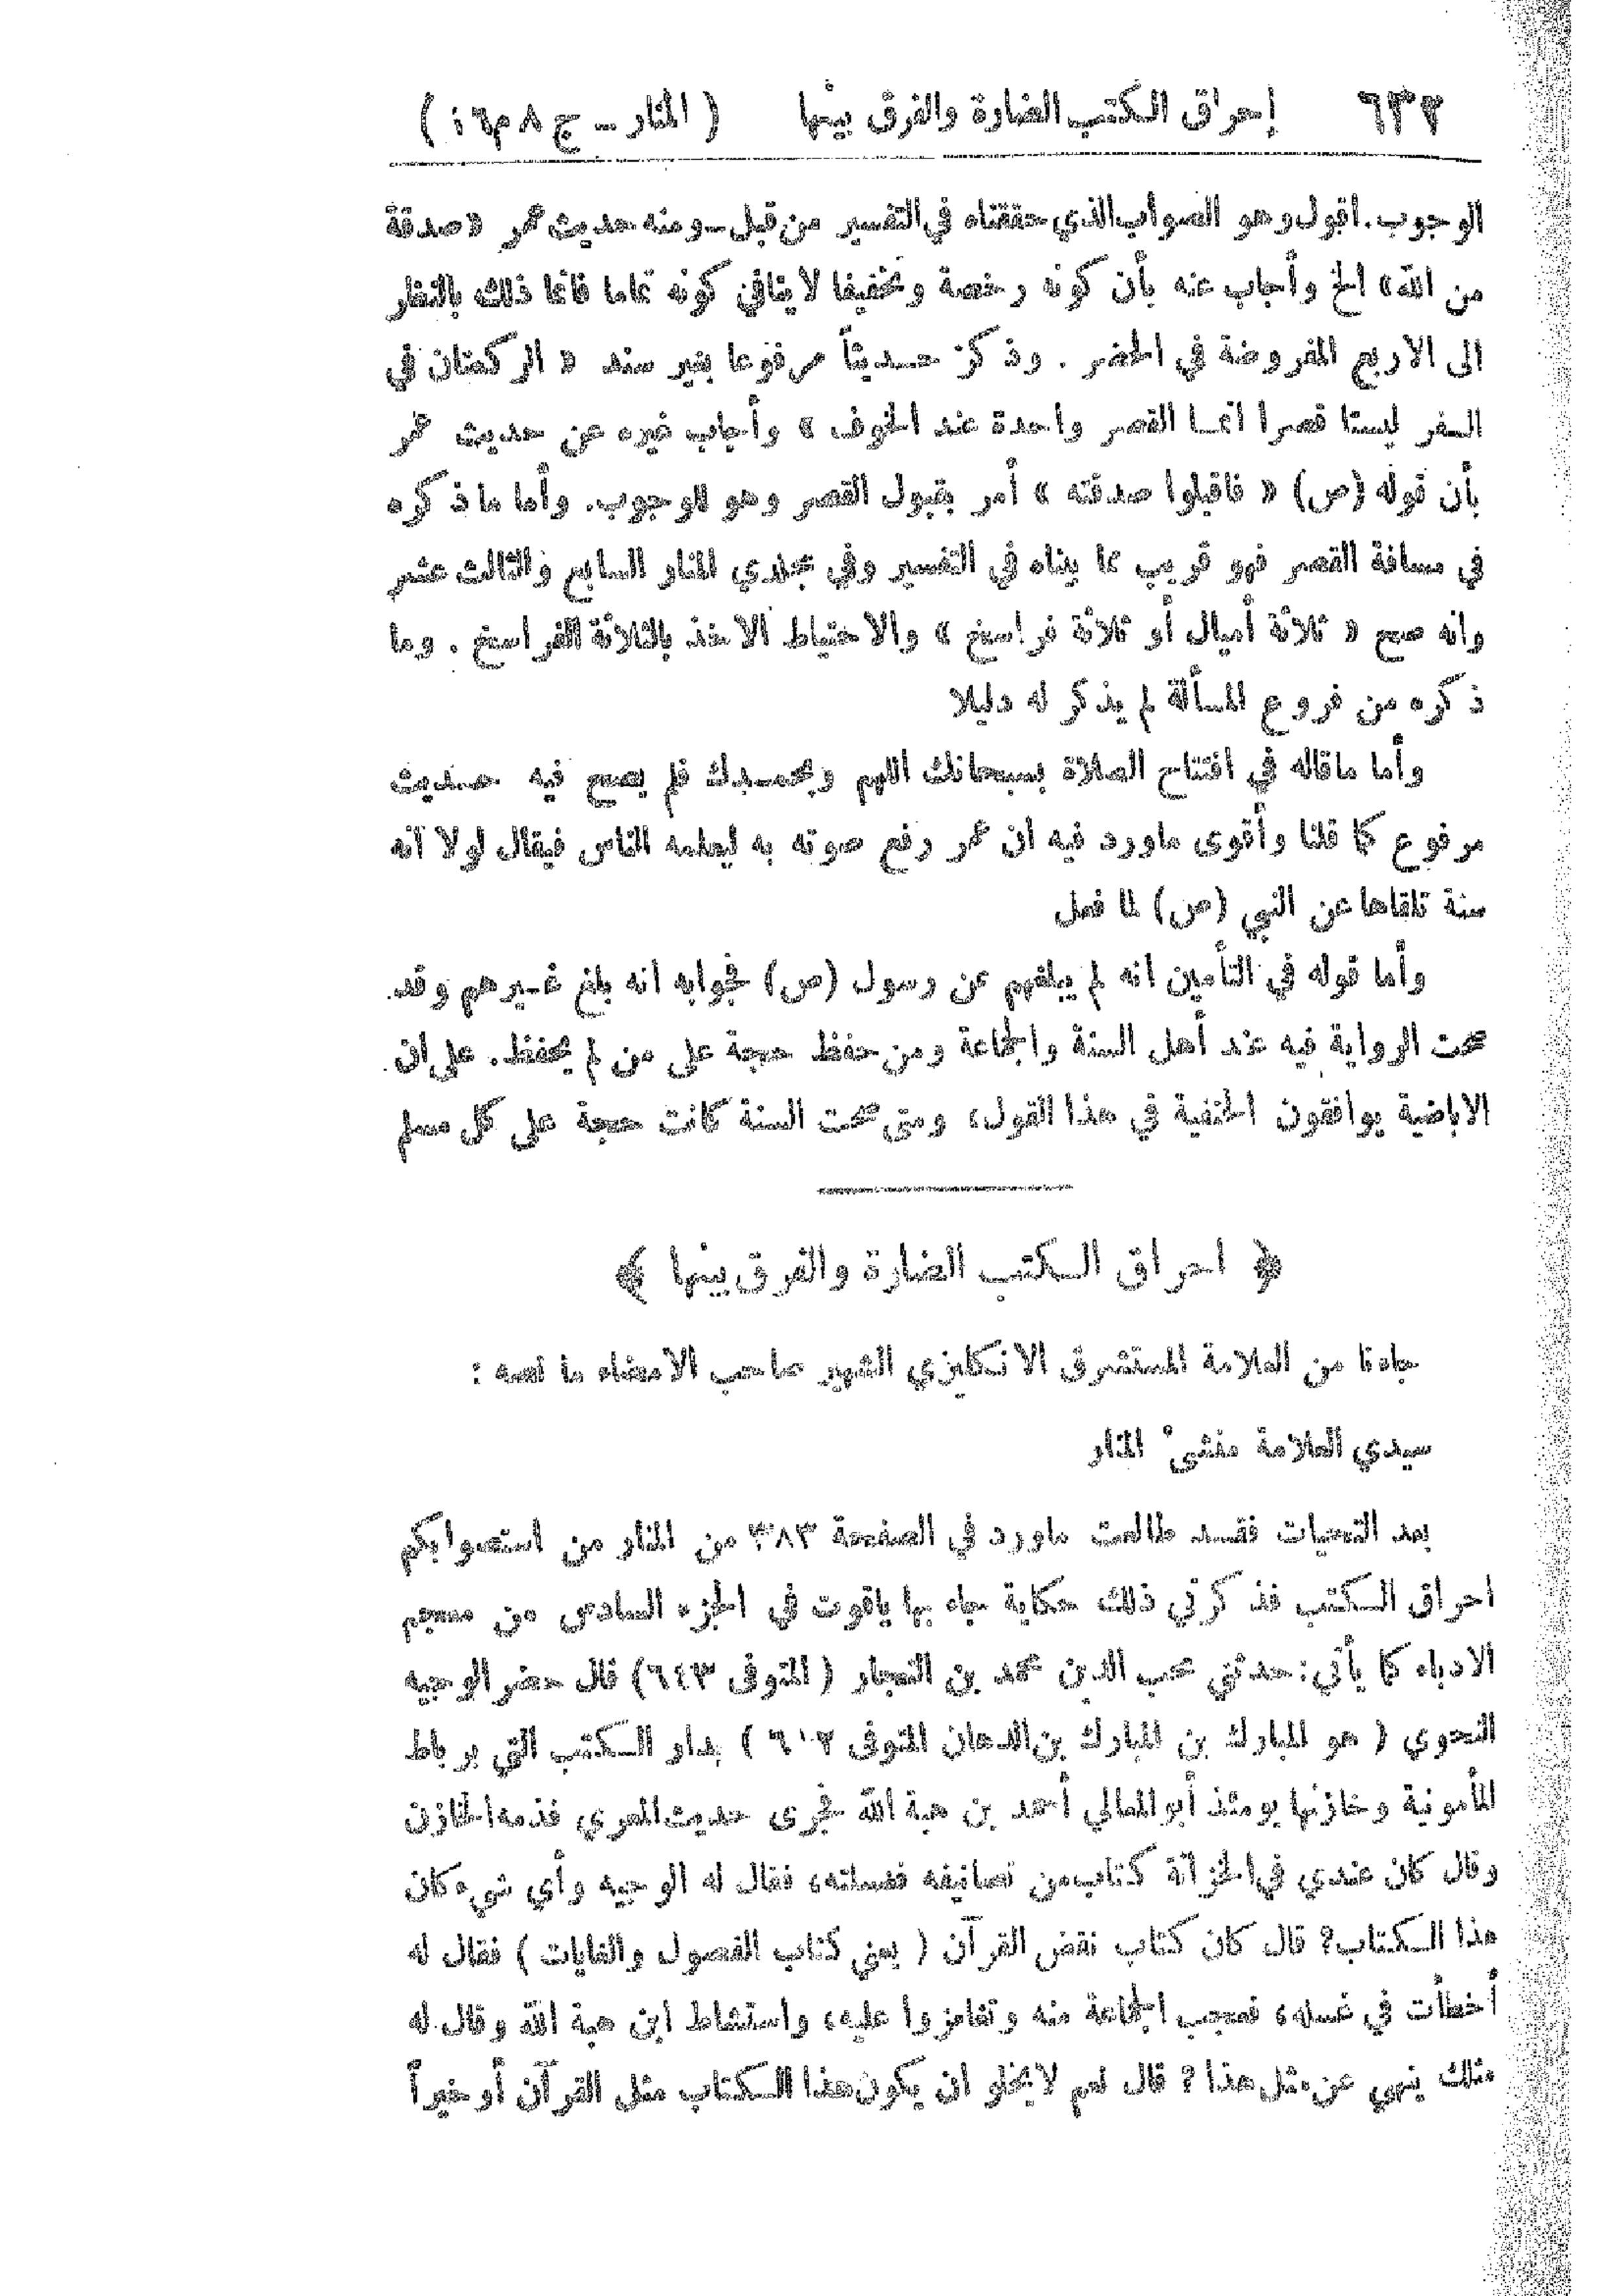 ٦٣٢ إحراق الكتب الضارة والفرق بينها ( المنار ــ ج ٨ م ١٦ )
الوجوب. أقول وهو الصواب الذي حققناه في التفسير من قبل ــ ومنه حديث عمر « صدقة
من الله» الخ وأجاب عنه بأن كونه رخصة وتخفيفا لا ينافي كونه تماما فانما ذلك بالنظر
الى الاربع المفروضة في الحضر . وذكر حديثاً مرفوعا بغير سند « الركعتان في
السفر ليستا قصرا انما القصر واحدة عند الخوف » وأجاب غيره عن حديث عمر
بأن قوله (ص) « فاقبلوا صدقته » أمر بقبول القصر وهو للوجوب. وأما ما ذكره
في مسافة القصر فهو قريب مما بيناه في التفسير وفي مجلدي المنار السابع والثالث عشر
وانه صح « ثلاثة أميال أو ثلاثة فراسخ » والاحتياط الاخذ بالثلاثة الفراسخ . وما
ذكره من فروع المسألة لم يذكر له دليلا
وأما ماقاله في افتتاح الصلاة بسبحانك اللهم وبحمدك فلم يصح فيه حديث
مرفوع كما قلنا وأقوى ماورد فيه ان عمر رفع صوته به ليعلمه الناس فيقال لولا أنه
سنة تلقاها عن النبي (ص) لما فعل
وأما قوله في التأمين انه لم يبلغهم عن رسول (ص) فجوابه انه بلغ غيرهم وقد
صحت الرواية فيه عند أهل السنة والجماعة ومن حفظ حجة على من لم يحفظ. على ان
الاباضية يوافقون الحنفية في هذا القول، ومتى صحت السنة كانت حجة على كل مسلم
﴿ احراق الكتب الضارة والفرق بينها ﴾
جاءنا من العلامة المستشرق الانكليزي الشهير صاحب الامضاء ما نصه :
سيدي العلامة منشئ المنار
بعد التحيات فقد طالعت ماورد في الصفحة ٣٨٣ من المنار من استصوابكم
احراق الكتب فذكرني ذلك حكاية جاء بها ياقوت في الجزء السادس من معجم
الادباء كما يأتي: حدثني محب الدين محمد بن النجار ( المتوفى ٦٤٣) قال حضر الوجيه
النحوي ( هو المبارك بن المبارك بن الدهان المتوفى ٦١٢ ) بدار الكتب التي برباط
المأمونية وخازنها يومئذ أبو المعالي أحمد بن هبة الله فجرى حديث المعري فذمه الخازن
وقال كان عندي في الخزانة كتاب من تصانيفه فغسلته، فقال له الوجيه وأي شيء كان
هذا الكتاب؟ قال كان كتاب نقض القرآن ( يعني كتاب الفصول والغايات ) فقال له
أخطأت في غسله، فعجب الجماعة منه وتغامزوا عليه، واستشاط ابن هبة الله وقال له
مثلك ينهى عن مثل هذا ؟ قال نعم لا يخلو ان يكون هذا الكتاب مثل القرآن أو خيراً